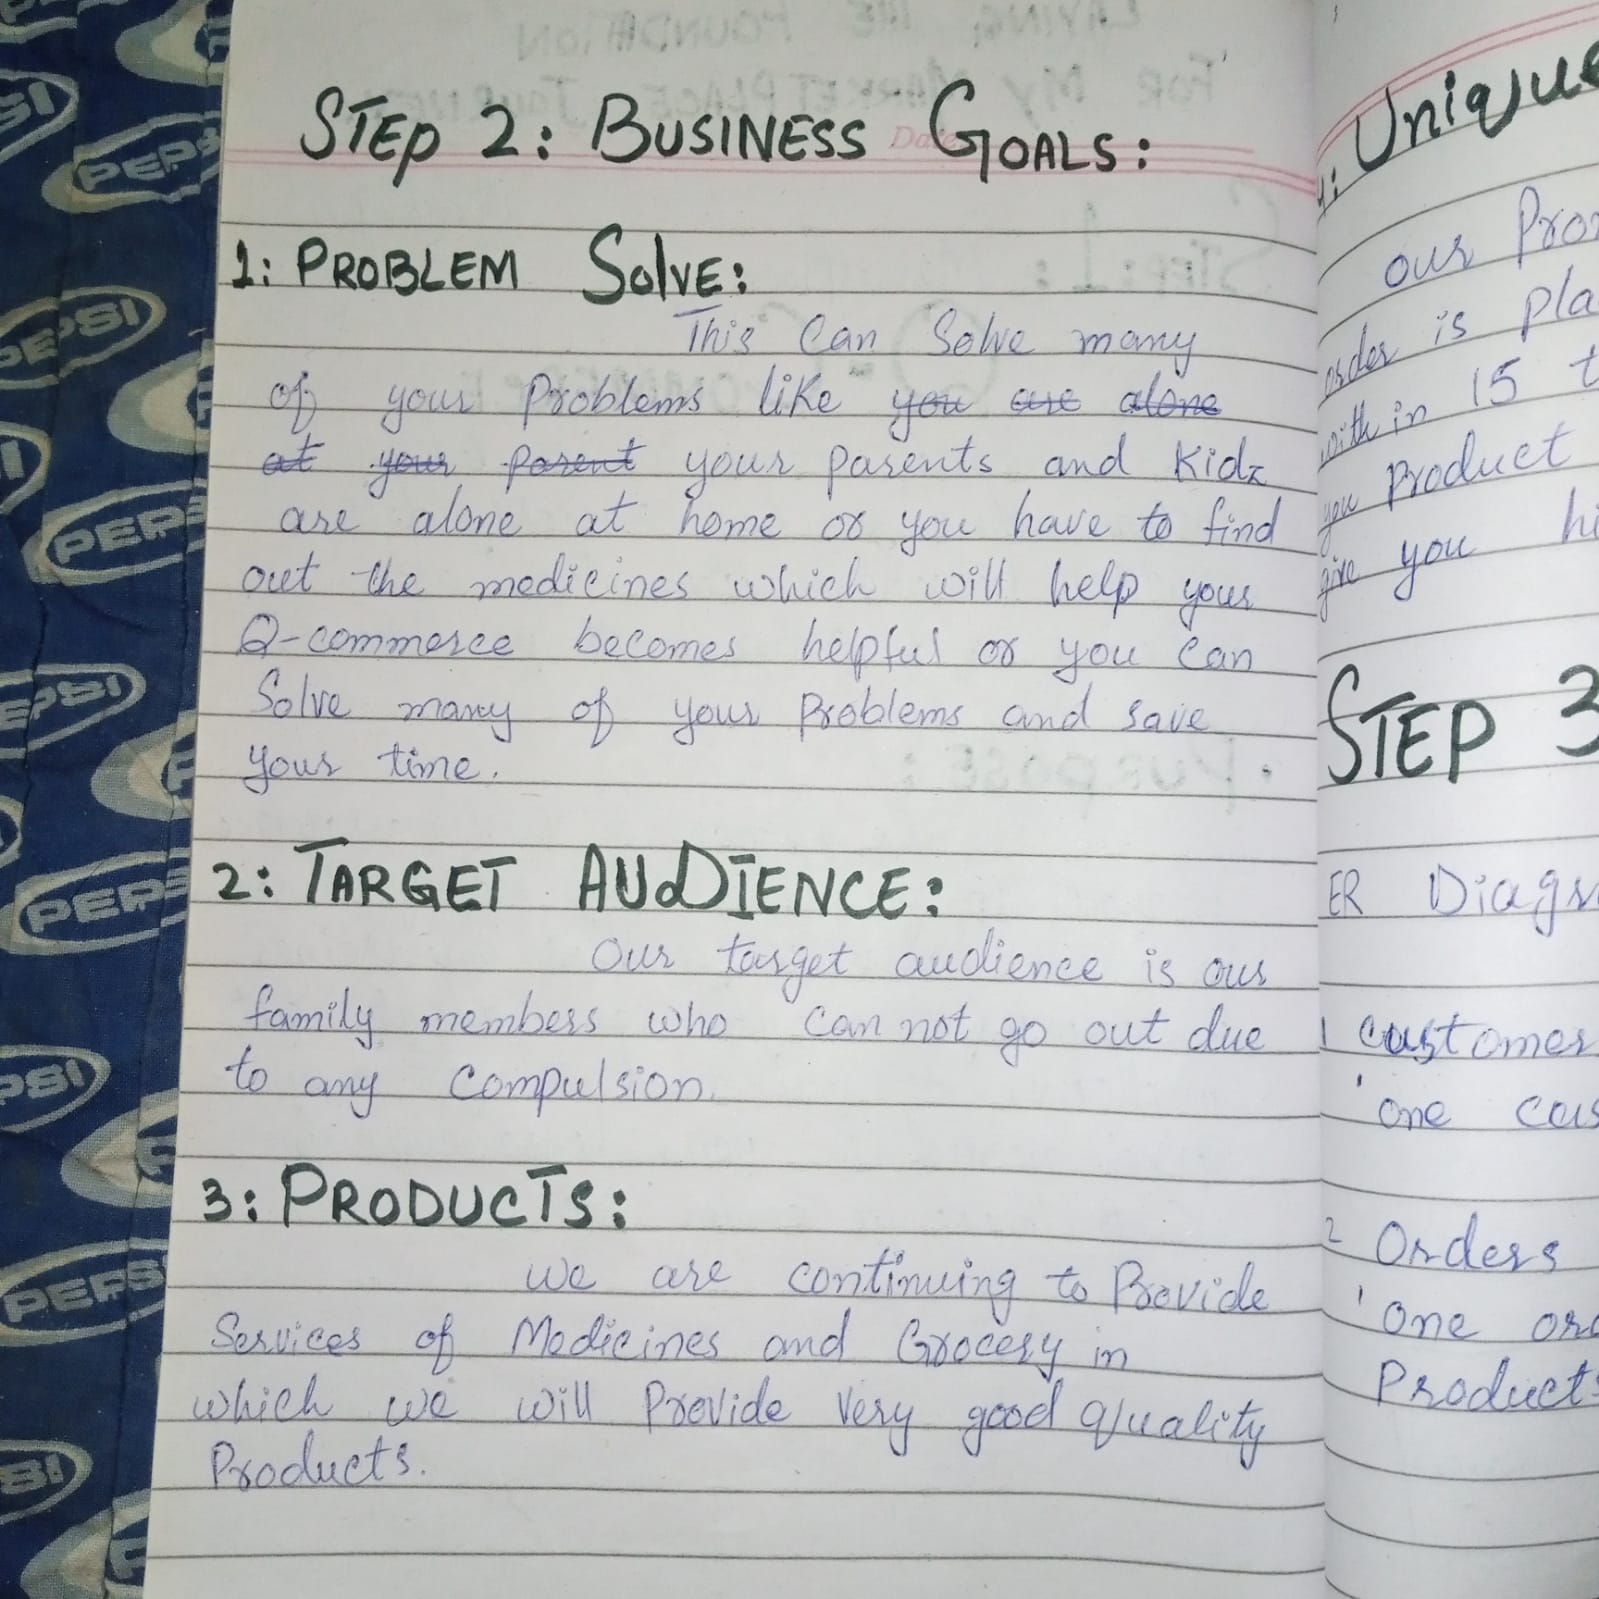 STEP 2: BUSINESS GOALS:
1: PROBLEM SOLVE:
This Can Solve many
of your Problems like you are alone
at your parent your parents and Kidz
are alone at home or you have to find
out the medicines which will help your
Q-commerce becomes helpful or you Can
Solve many of your Problems and save
your time.
2: TARGET AUDIENCE:
Our target audience is our
family members who can not go out due
to any Compulsion.
3: PRODUCTS:
we are continuing to Provide
Services of Medicines and Grocery in
which we will Provide very good quality
Products.
4: Unique
our
order is
with in 15
you Product
give you
STEP 3
ER
1 customer
one
2 Orders
one
Products
PEPSI
PEPSI
PEPSI
PEPSI
PEPSI
PEPSI